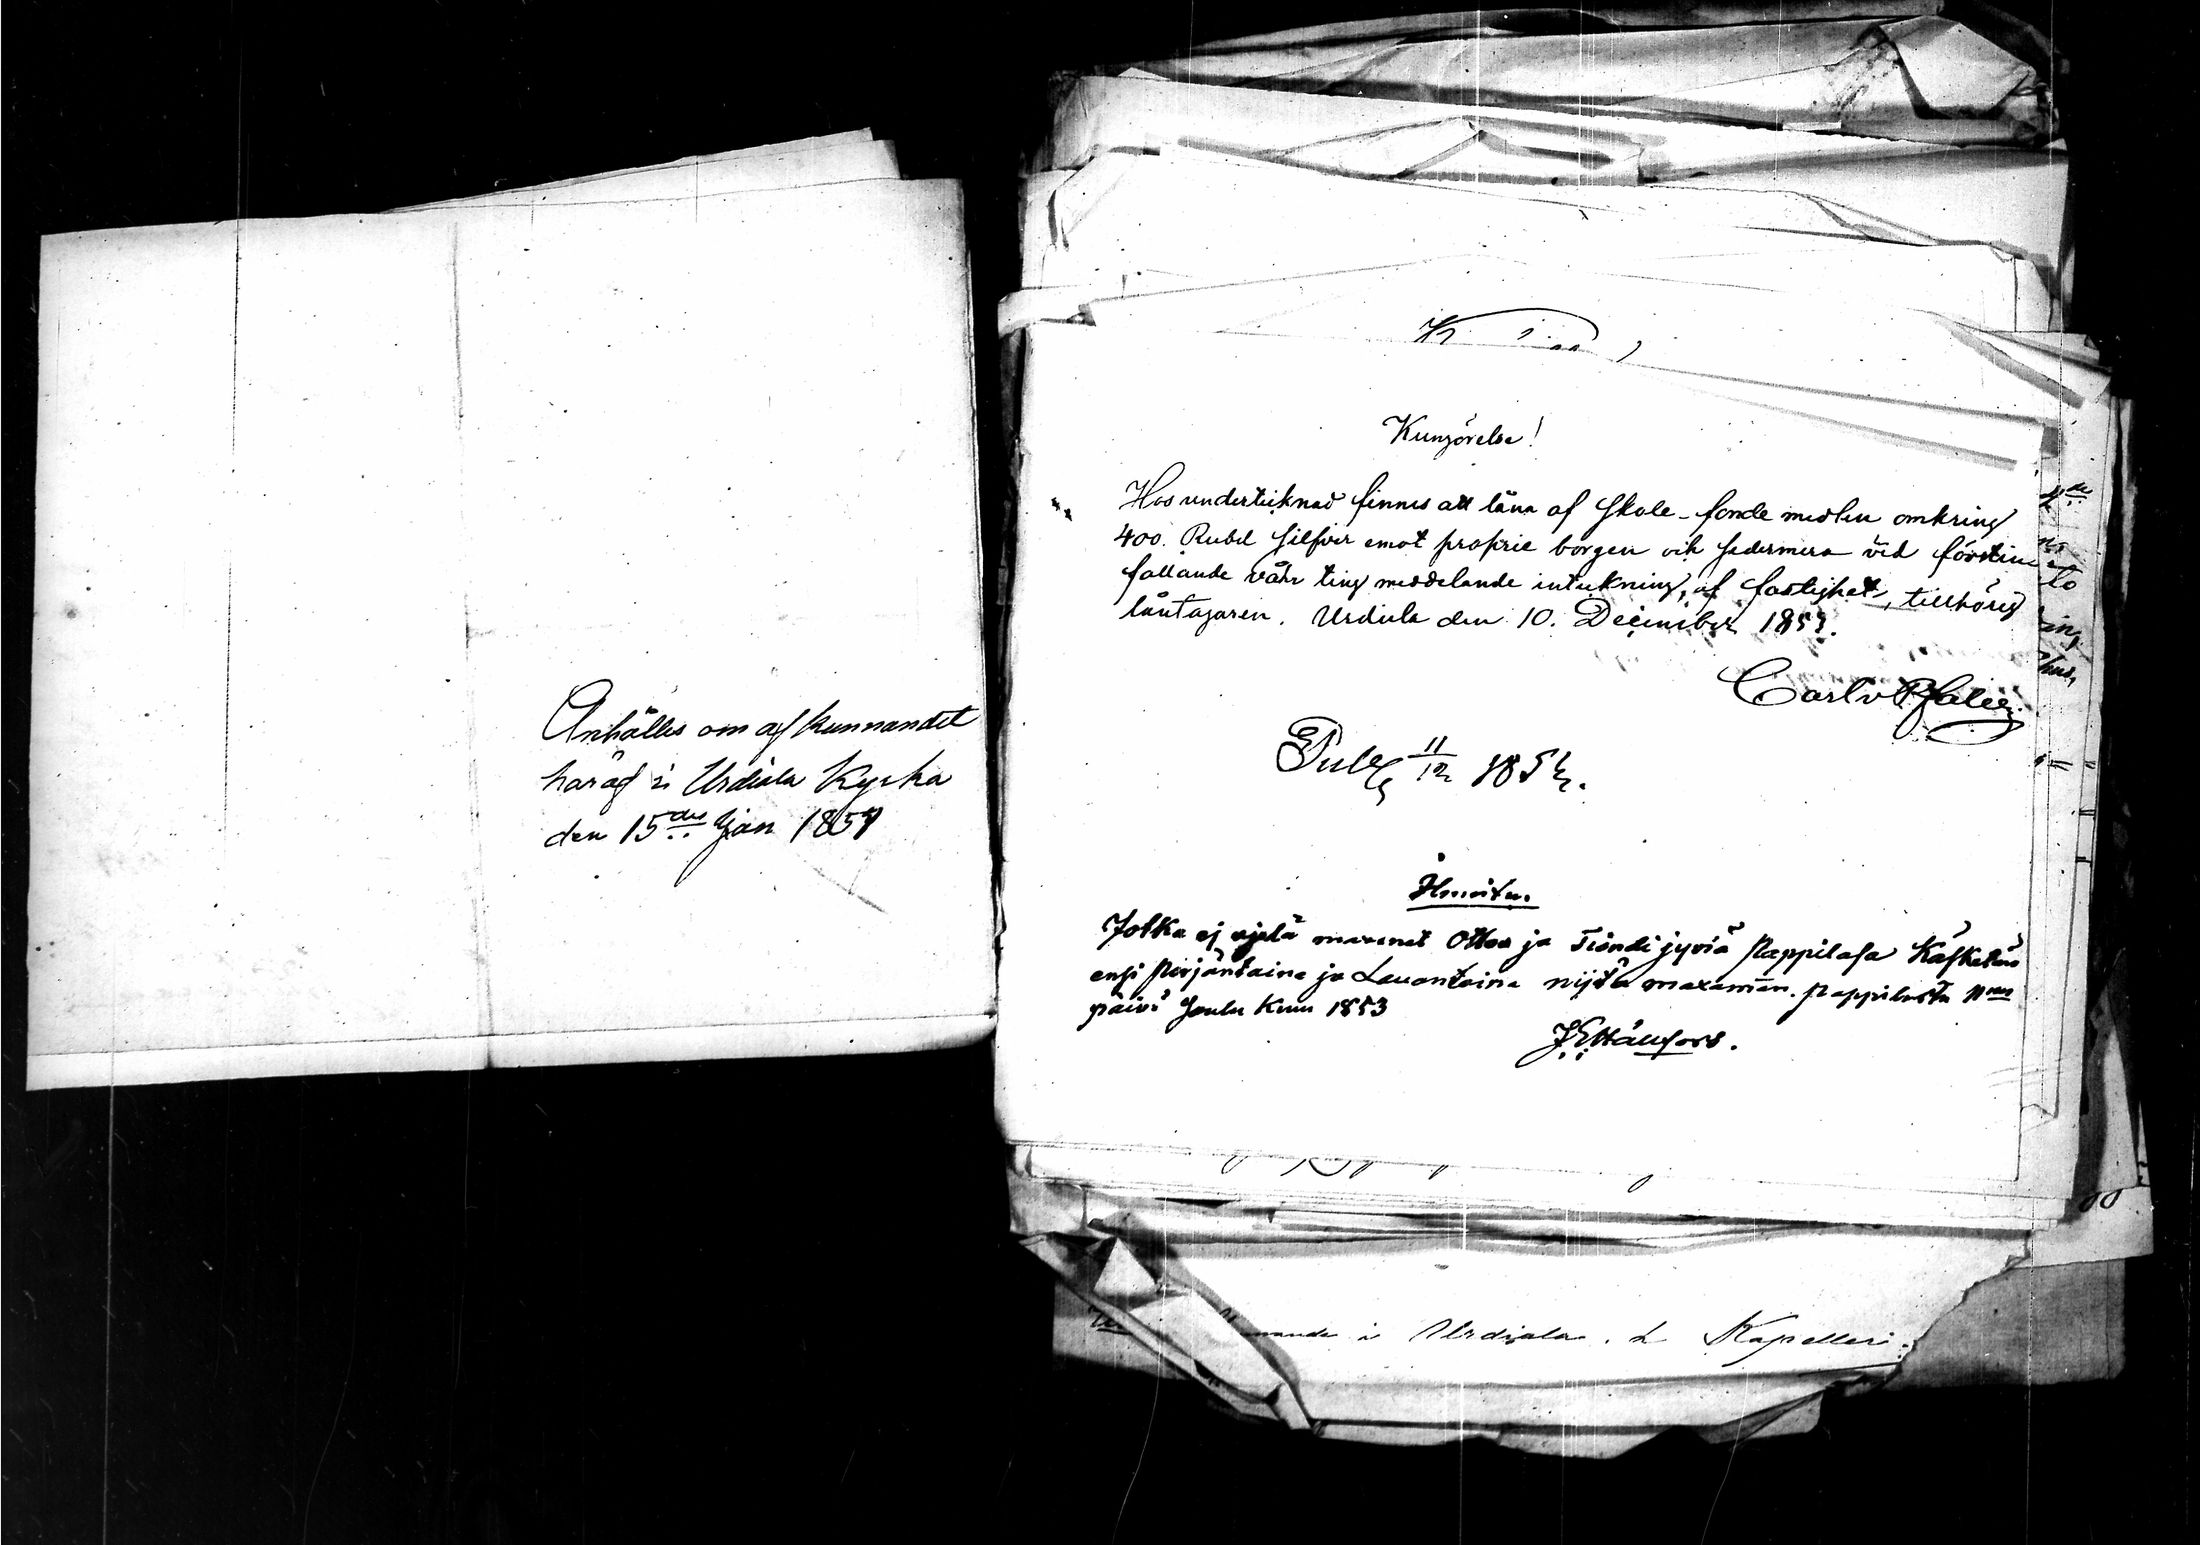 Anhålles om af kunnandet
häraf i Urdiala Kyrka
den 15de Jan 1854
Kungörelse!
Hos undertecknad finnes att låna af Skole-fonde medlen omkring
400. Rubel Silfver emot proprie borgen och sedermera vid först in
fallande vår ting meddelande inteckning, af fastighet, tillhörig
låntagaren. Urdiala den 10. December 1853.
Carl v Pfaler
Publ 11/12 1853.
Ilmoitu.
Jotka ej vjelä maxanet Ottoa ja Tiondi jyviä Pappilasa Käsketän
ensi Perjantaina ja Lauantaina nijtä maxaman. Pappilasta 11
päivä Joulu Kuu 1853
J E Hällfors.
i Urdiala. Kapelleri